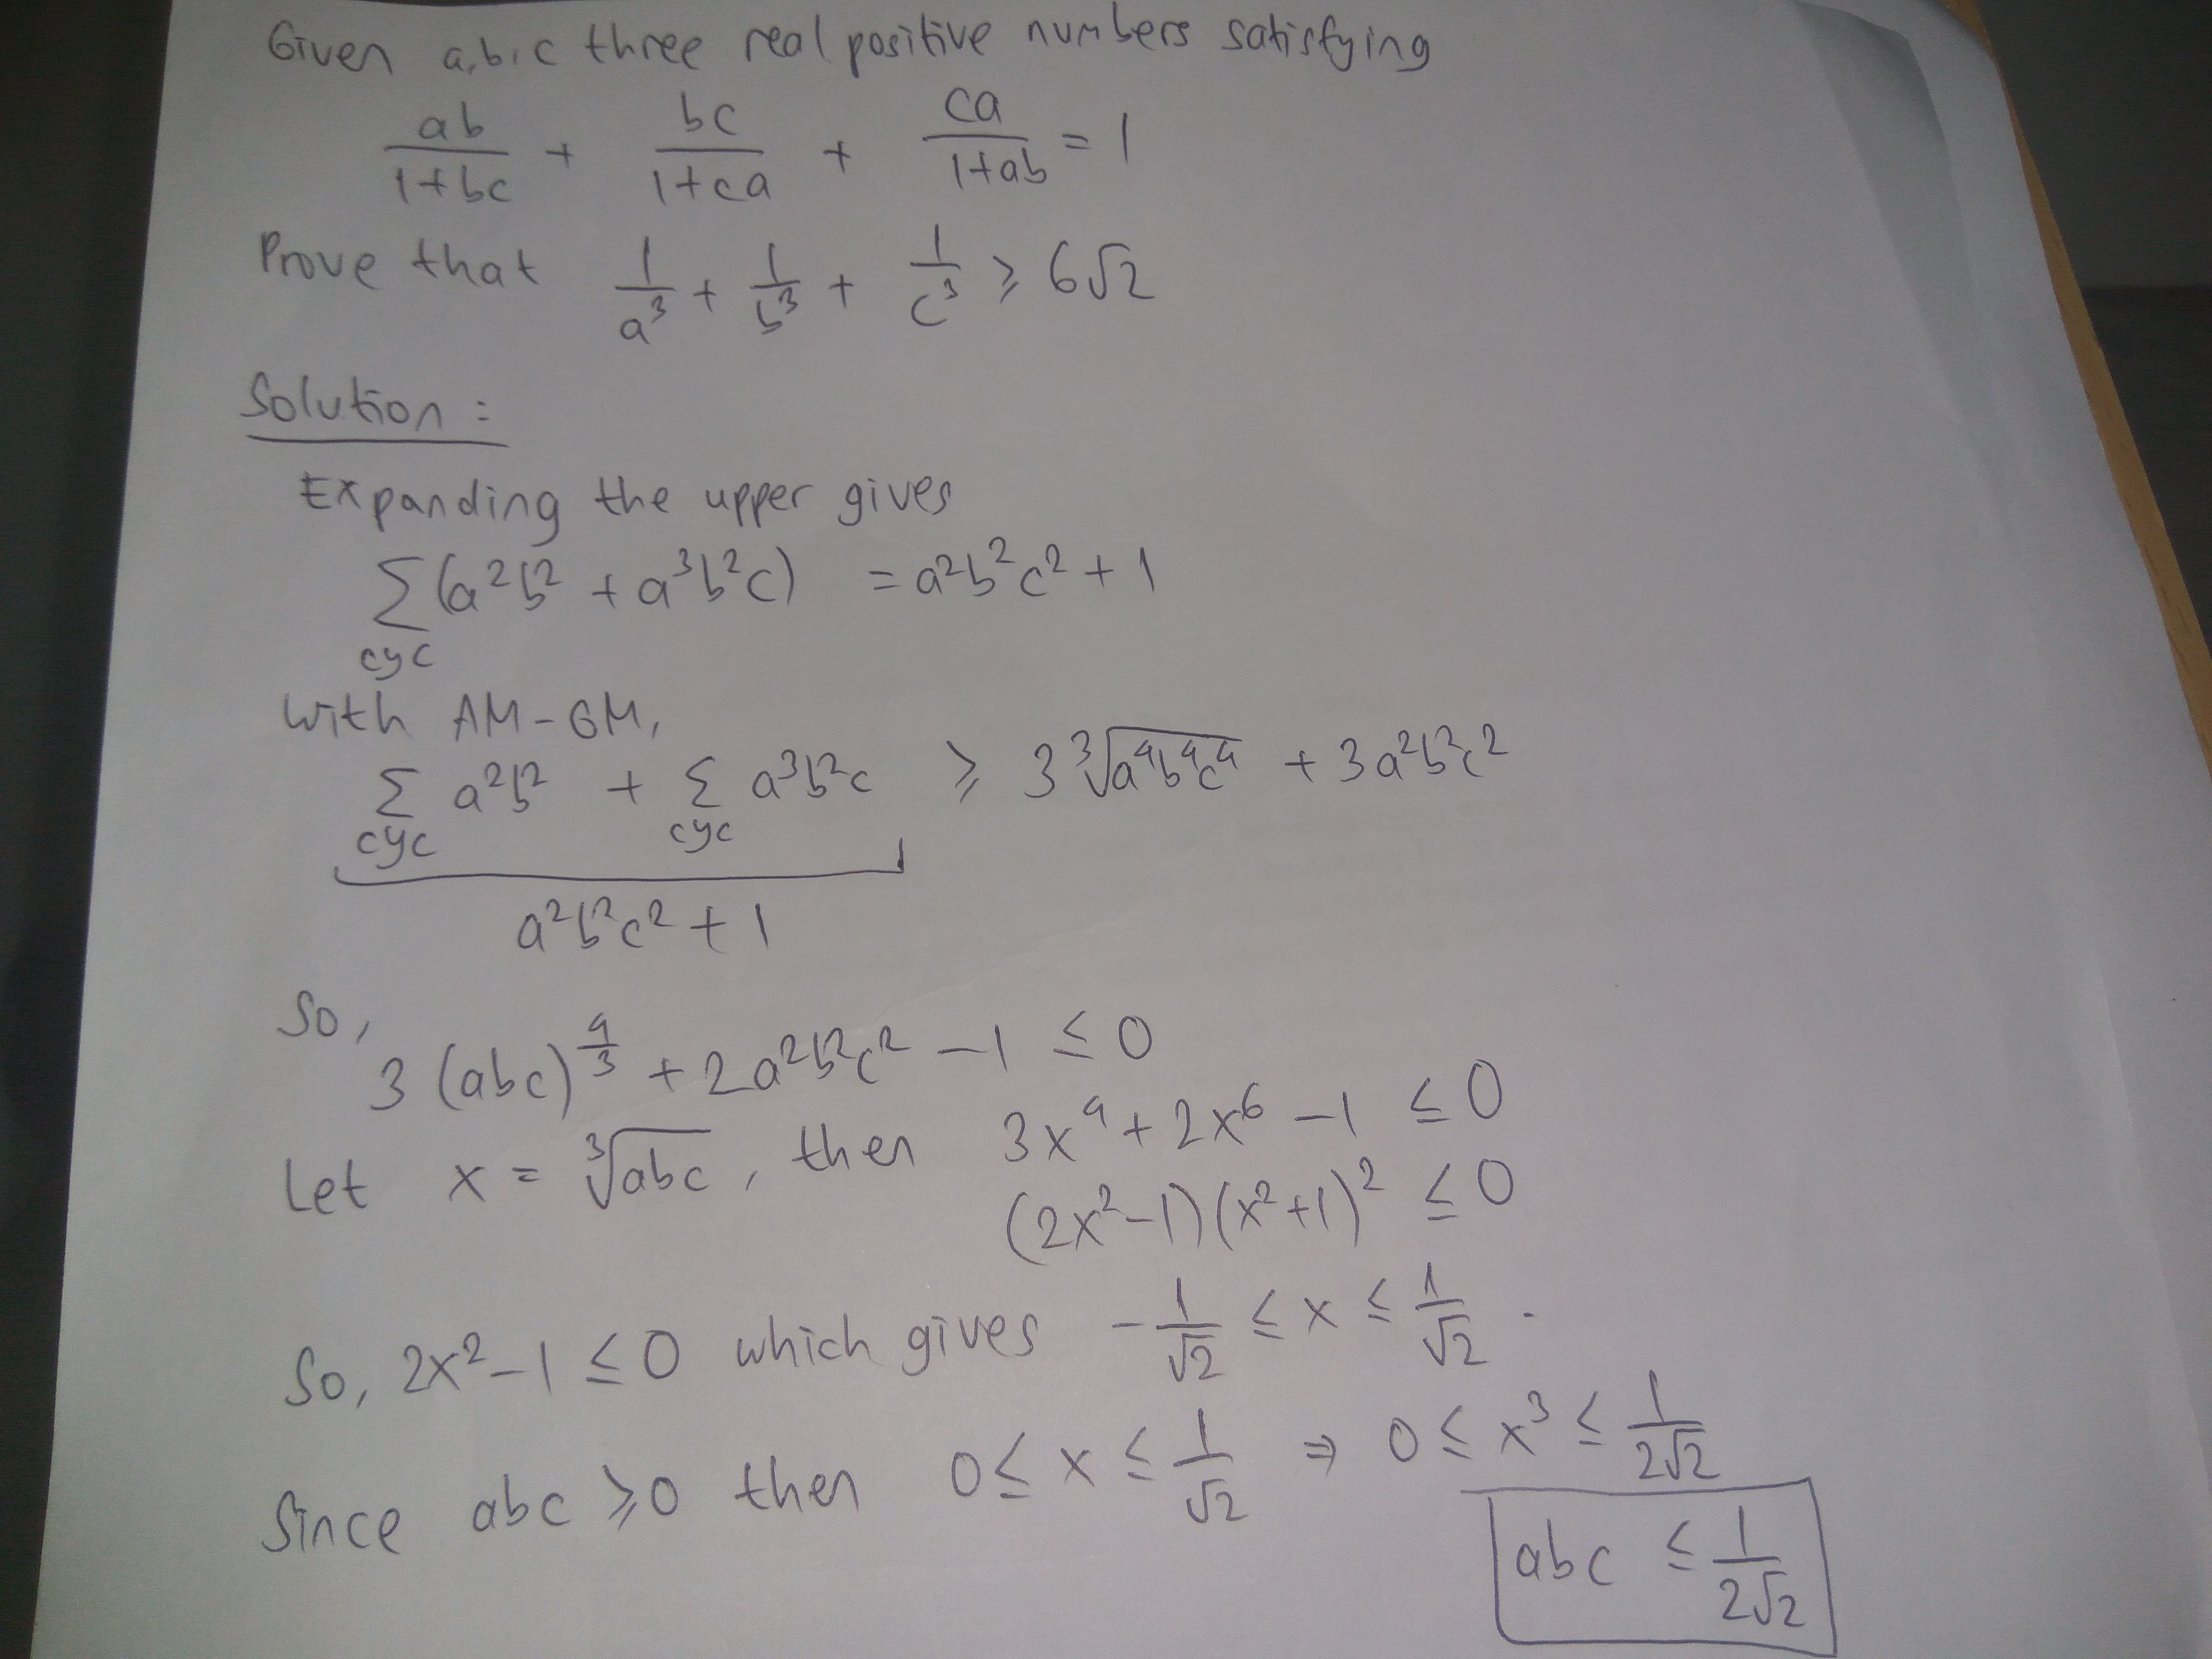 Given a,b,c three real positive numbers satisfying
ab/(1+bc) + bc/(1+ca) + ca/(1+ab) = 1
Prove that 1/a³ + 1/b³ + 1/c³ ≥ 6√2
Solution :
Expanding the upper gives
∑cyc (a²b² + a³b²c) = a²b²c² + 1
With AM-GM,
∑cyc a²b² + ∑cyc a³b²c ≥ 3∛(a⁴b⁴c⁴) + 3a²b²c²
a²b²c² + 1
So,
3 (abc)^(4/3) + 2a²b²c² - 1 ≤ 0
Let x = ∛(abc), then 3x⁴ + 2x⁶ - 1 ≤ 0
(2x²-1)(x²+1)² ≤ 0
So, 2x²-1 ≤ 0 which gives -1/√2 ≤ x ≤ 1/√2 .
Since abc ≥ 0 then 0 ≤ x ≤ 1/√2 ⇒ 0 ≤ x³ ≤ 1/(2√2)
abc ≤ 1/(2√2)